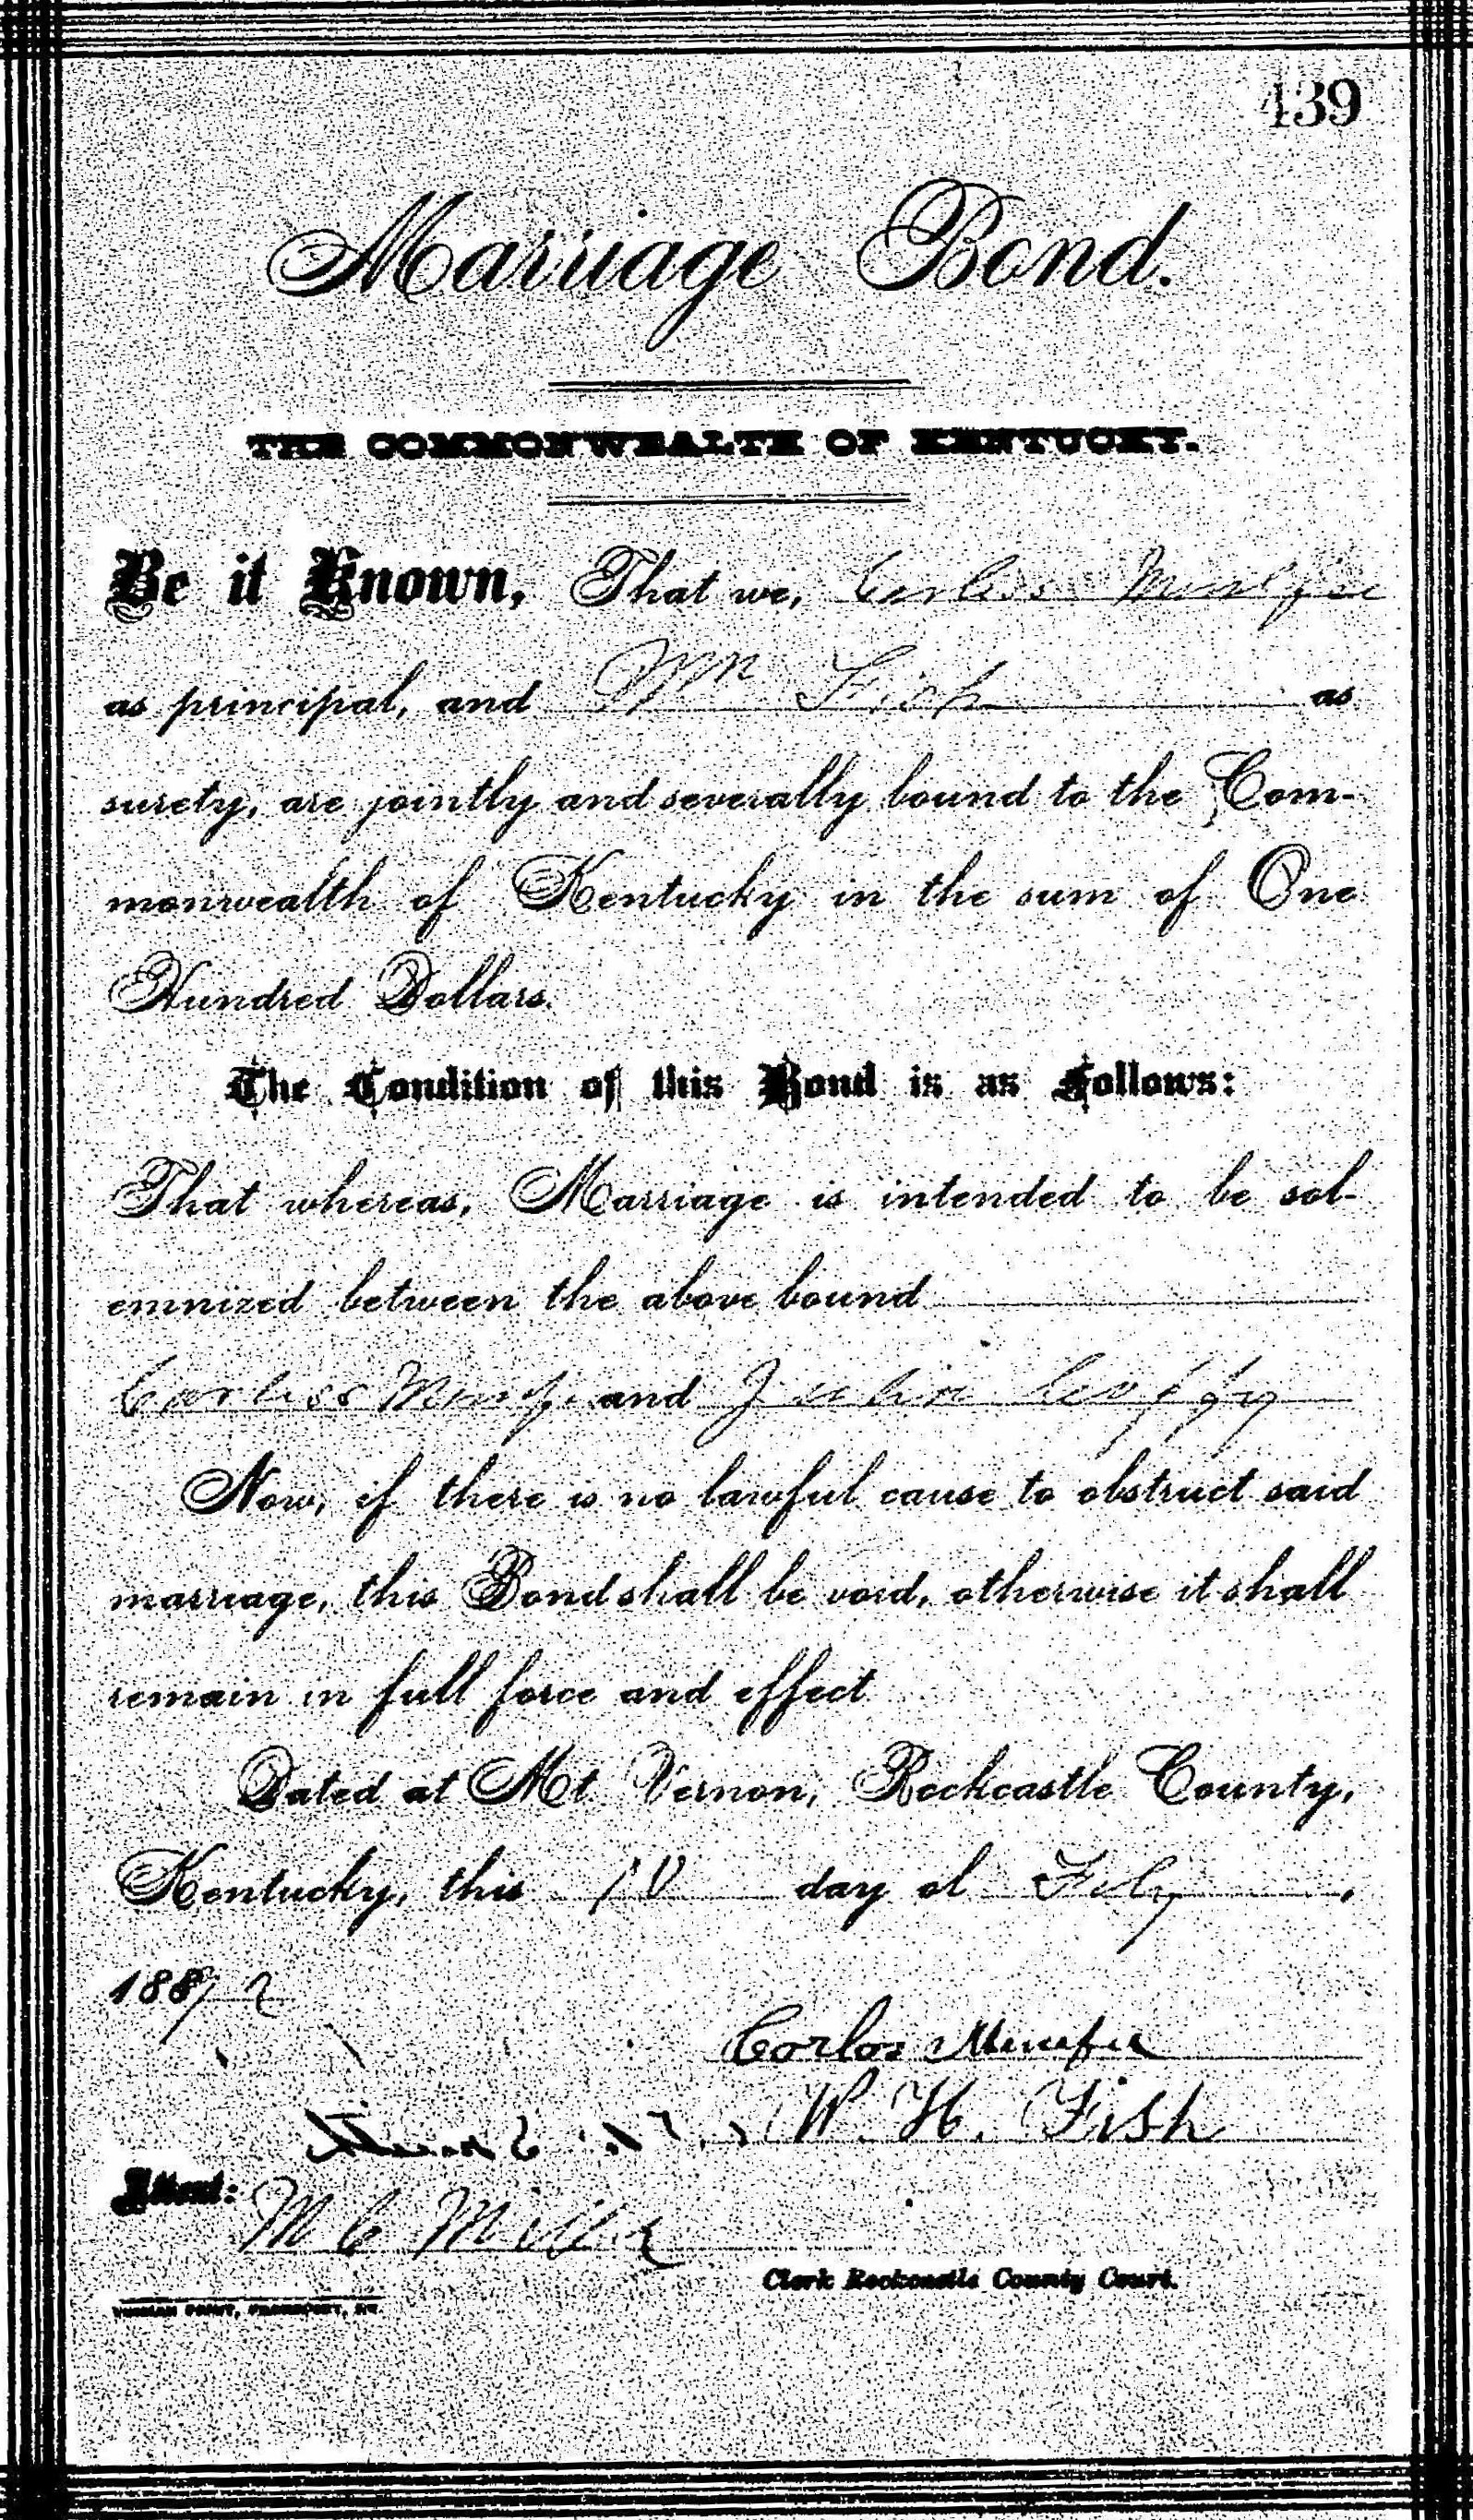 439
Marriage Bond.
THE COMMONWEALTH OF KENTUCKY.
Be it Known, That we, Carliss Menefee
as principal, and Wm Fish as
surety, are jointly and severally bound to the Com-
monwealth of Kentucky in the sum of One
Hundred Dollars.
The Condition of this Bond is as Follows:
That whereas, Marriage is intended to be sol-
emnized between the above bound
Carliss Menefe and Julia
Now, if there is no lawful cause to obstruct said
marriage, this Bond shall be void, otherwise it shall
remain in full force and effect
Dated at Mt. Vernon, Rockcastle County,
Kentucky, this 10 day of Feby,
1892
Corlos Menefee
W. H. Fish
Attest:
M C Miller
Clerk Rockcastle County Court.